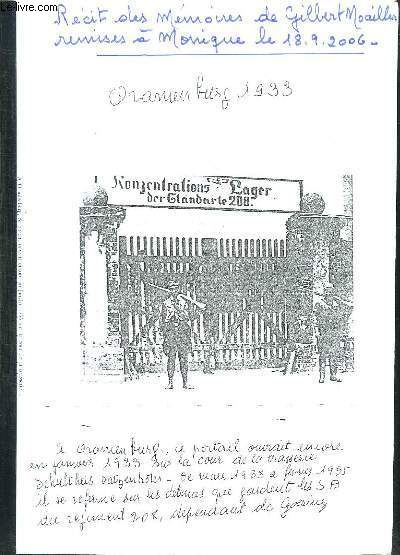 Récit des Mémoires de Gilbert
remises à Monique le 18.9.2006-
Oranienburg 1933
Konzentrations Lager
der Standarte 208.
A Oranienburg, ce portail ouvrait encore
en janvier 1933 sur la cour de la brasserie
De mars 1933 a 1935
il se referme sur les détenus que gardent les SA
du régiment 208, dépendant de Goering